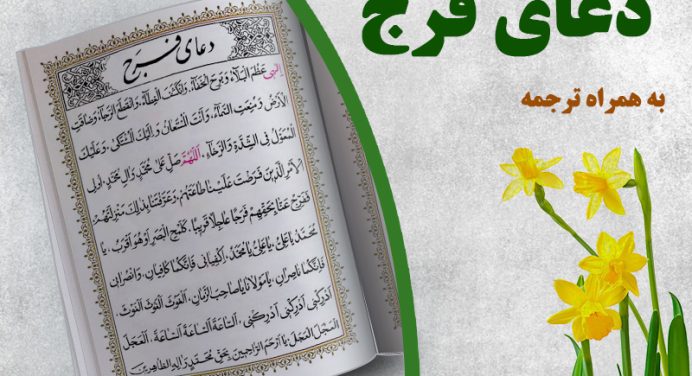 دعای فرج
به همراه ترجمه
دعای فرج
اِلهی عَظُمَ الْبَلاءُ، وَبَرِحَ الْخَفاءُ، وَانْکَشَفَ الْغِطاءُ، وَانْقَطَعَ الرَّجاءُ، وَضاقَتِ
الْاَرْضُ، وَمُنِعَتِ السَّماءُ، وَاَنْتَ الْمُسْتَعانُ، وَاِلَیْکَ الْمُشْتَکی، وَعَلَیْکَ
الْمُعَوَّلُ فِی الشِّدَّةِ وَالرَّخاءِ، اَللّهُمَّ صَلِّ عَلی مُحَمَّدٍ وَالِ مُحَمَّدٍ، اُولِی
الْاَمْرِ الَّذینَ فَرَضْتَ عَلَیْنا طاعَتَهُمْ، وَعَرَّفْتَنا بِذلِکَ مَنْزِلَتَهُمْ،
فَفَرِّجْ عَنّا بِحَقِّهِمْ فَرَجاً عاجِلاً قَریبًا، کَلَمْحِ الْبَصَرِ اَوْ هُوَ اَقْرَبُ، یا
مُحَمَّدُ یا عَلِیُّ، یا عَلِیُّ یا مُحَمَّدُ، اِکْفِیانی فَاِنَّکُما کافِیانِ، وَانْصُرانی
فَاِنَّکُما ناصِرانِ، یا مَوْلانا یا صاحِبَ الزَّمانِ، اَلْغَوْثَ الْغَوْثَ الْغَوْثَ،
اَدْرِکْنی اَدْرِکْنی اَدْرِکْنی، اَلسّاعَةَ السّاعَةَ السّاعَةَ، اَلْعَجَلَ
الْعَجَلَ الْعَجَلَ، یا اَرْحَمَ الرّاحِمینَ بِحَقِّ مُحَمَّدٍ وَالِهِ الطّاهِرینَ